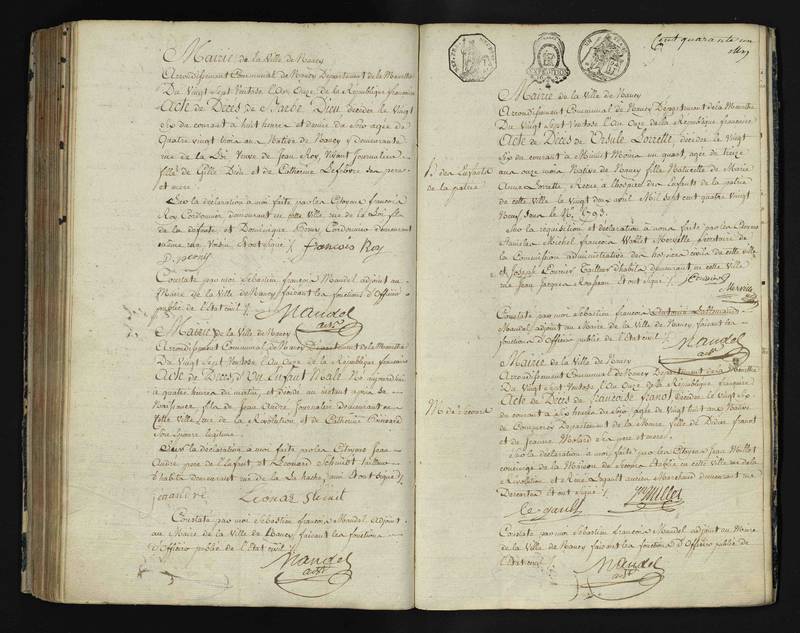 Mairie de la Ville de Nancy
Arrondissement Communal de Nancy Département de la Meurthe
Du Vingt Sept Ventose l'An Onze de la République française
Acte de Décès de Barbe Dieu décédée le Vingt
Six du courant à huit heures et demie du Soir agée de
Quatre vingt trois ans Native de Nancy y demeurante
rue de la Loi Veuve de Jean Roy, Vivant Journalier
fille de Gille Dieu et de Catherine Lefebvre ses père
et mere.
Sur la déclaration à moi faite par les Citoyens françois
Roy Cordonnier demeurant en cette Ville, rue de la Loi fils
de la défunte et Dominique Cordonnier demeurant
même rue et ont signé
françois Roy
Constaté par moi Sébastien françois Mandel adjoint au
Maire de la Ville de Nancy faisant les fonctions d'Officier
public de l'Etat civil
Mandel
adjt
Mairie de la Ville de Nancy
Arrondissement Communal de Nancy Département de la Meurthe
Du Vingt Sept Ventose l'An Onze de la République française
Acte de Décès d'Un Enfant Male Né aujourd'hui
à quatre heures du matin, et décédé au instant après sa
Naissance fils de Jean André Journalier demeurant en
cette Ville, rue de la Révolution et de Catherine
Son épouse légitime.
Sur la déclaration à moi faite par les Citoyens Jean
André père de l'enfant et Léonard Schmidt tailleur
d'habits demeurant rue de la hache, qui ont signé
jean andré
Constaté par moi Sébastien françois Mandel adjoint
au Maire de la Ville de Nancy faisant les fonctions
d'Officier public de l'Etat civil
Mandel
adjt
Cent quarante un
Mairie de la Ville de Nancy
Arrondissement Communal de Nancy Département de la Meurthe
Du Vingt Sept Ventose l'An Onze de la République française
Acte de Décès de Ursule Lorrette, décédée le Vingt
Six du courant à Minuit Moins un quart, agée de treize
ans onze mois Native de Nancy fille Naturelle de Marie
Anne Lorrette, à l'hospice des Enfants de la patrie
de cette Ville le Vingt deux avril Mil Sept cent quatre vingt
treize Sous le No. 1793.
H. des Enfants
de la patrie
Sur la réquisition et déclaration à nous faite par les Citoyens
Stanislas Michel françois Morville Secrétaire de
la Commission administrative des hospices civils de cette Ville
et Joseph Tailleur d'habits demeurant en cette Ville
rue Jean Jacques Rousseau et ont signé
Constaté par moi Sébastien françois
Mandel adjoint au Maire de la Ville de Nancy faisant les
fonctions d'Officier public de l'Etat civil
Mandel
adjt
Mairie de la Ville de Nancy
Arrondissement Communal de Nancy Département de la Meurthe
Du Vingt Sept Ventose l'An Onze de la République française
Acte de Décès de françoise franot décédée le Vingt Six
du courant à Six heures du Soir agée de Vingt huit ans Native
de Département de la Meuse, fille de Didier franot
et de Jeanne Molard ses père et mere.
M. de Secours
Sur la déclaration à moi faite par les Citoyens Jean Millot
concierge de la Maison de Secours Etablie en cette Ville rue de la
Révolution et ancien Marchand demeurant rue
Descartes et ont signé
Constaté par moi Sébastien françois Mandel adjoint au Maire
de la Ville de Nancy faisant les fonctions d'Officier public de
l'Etat civil
Mandel
adjt